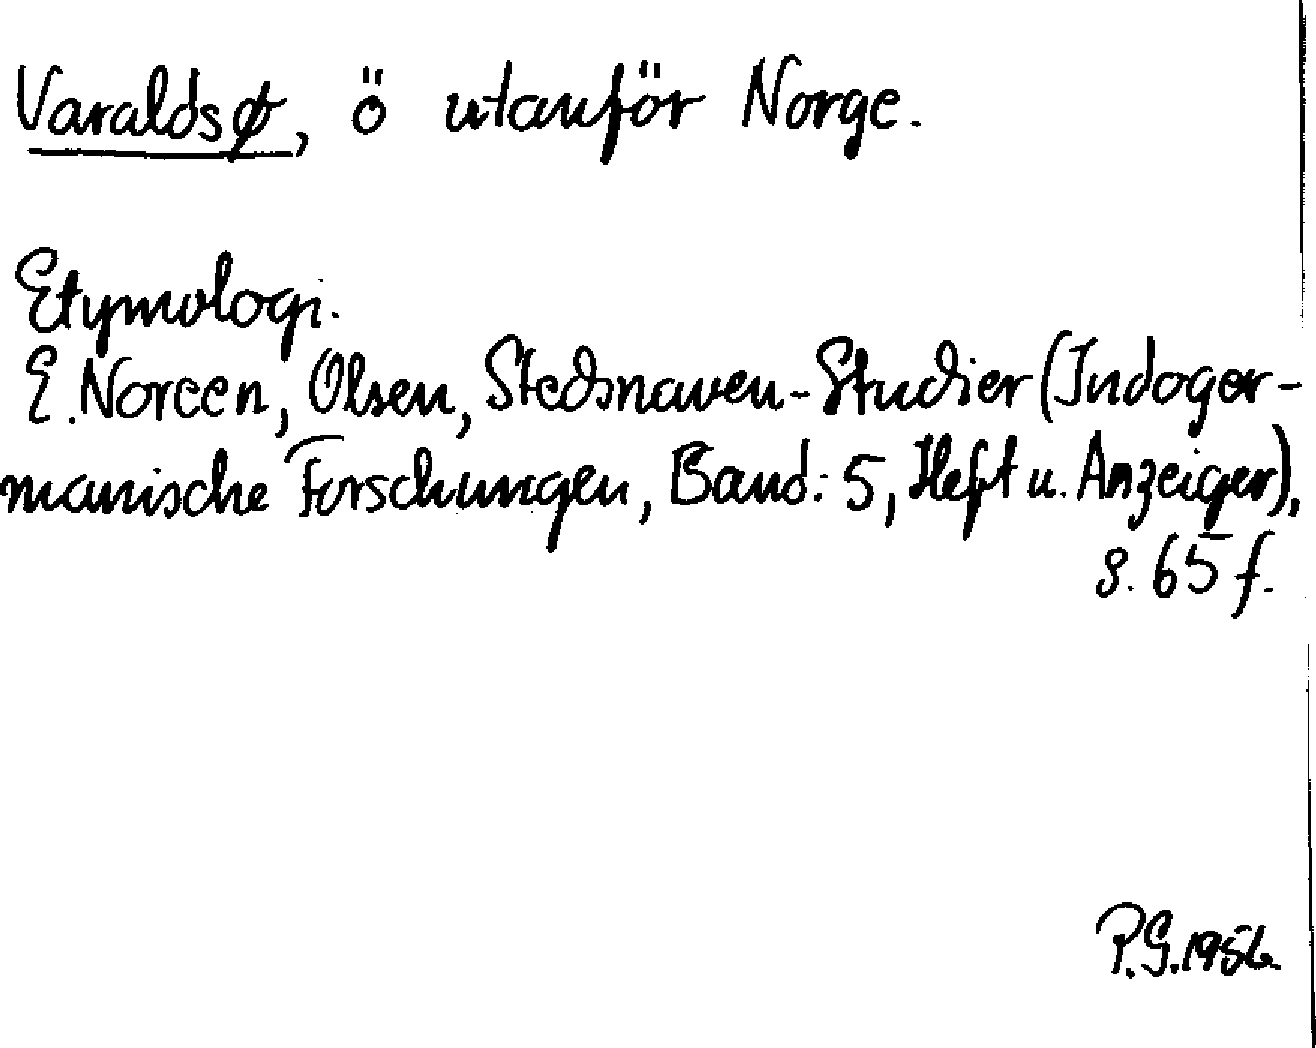 Varaldsø, ö utanför Norge.
Etymologi.
E. Noreen, Olsen, Stedsnaven-Studier (Indoger-
manische Forschungen, Band: 5, Heft u. Anzeiger),
s. 65 f.
P.G. 1956.